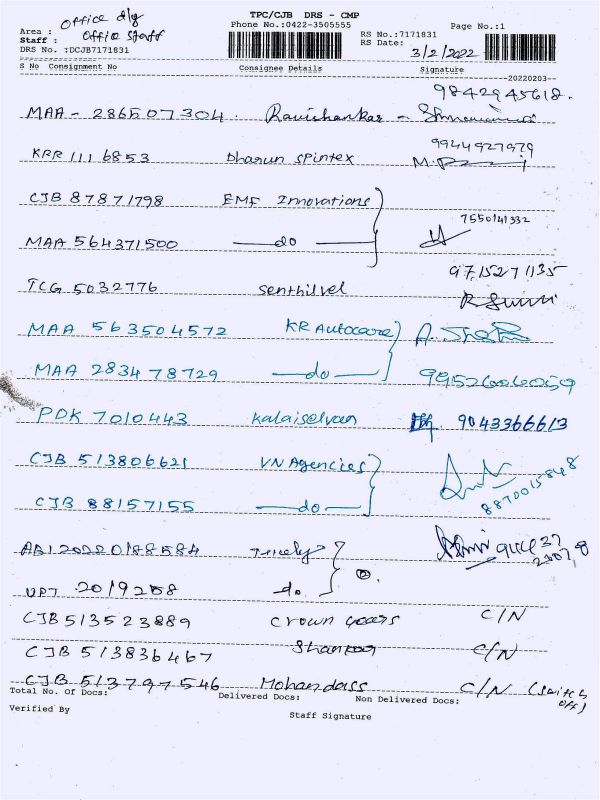 TPC/CJB DRS - CMP
Area : Office dly Phone No.:0422-3505555 Page No.:1
Staff : Office Staff RS No.:7171831
DRS No. :DCJB7171831 RS Date: 3/2/2022
S No Consignment No Consignee Details Signature
20220203
9842945618.
MAA - 286507304. Ravishankar -
9944927979
KRR 111 6853 Dharun Spintex
CJB 87871798 EMF Innovations
7550141332
MAA 564371500 do
9715271135
TCG 5032776 Senthilvel
MAA 563504572 KR Autocare
MAA 283478729 do
PDK 7010443 Kalaiselvan 9043366613
CJB 513806621 VN Agencies
8870015848
CJB 88157155 do
do.
CJB 513523889 Crown Gears C/N
CJB 513836467 C/N
CJB 513797546 Mohandass C/N (Switch off)
Total No. of Docs: Delivered Docs: Non Delivered Docs:
Verified By Staff Signature